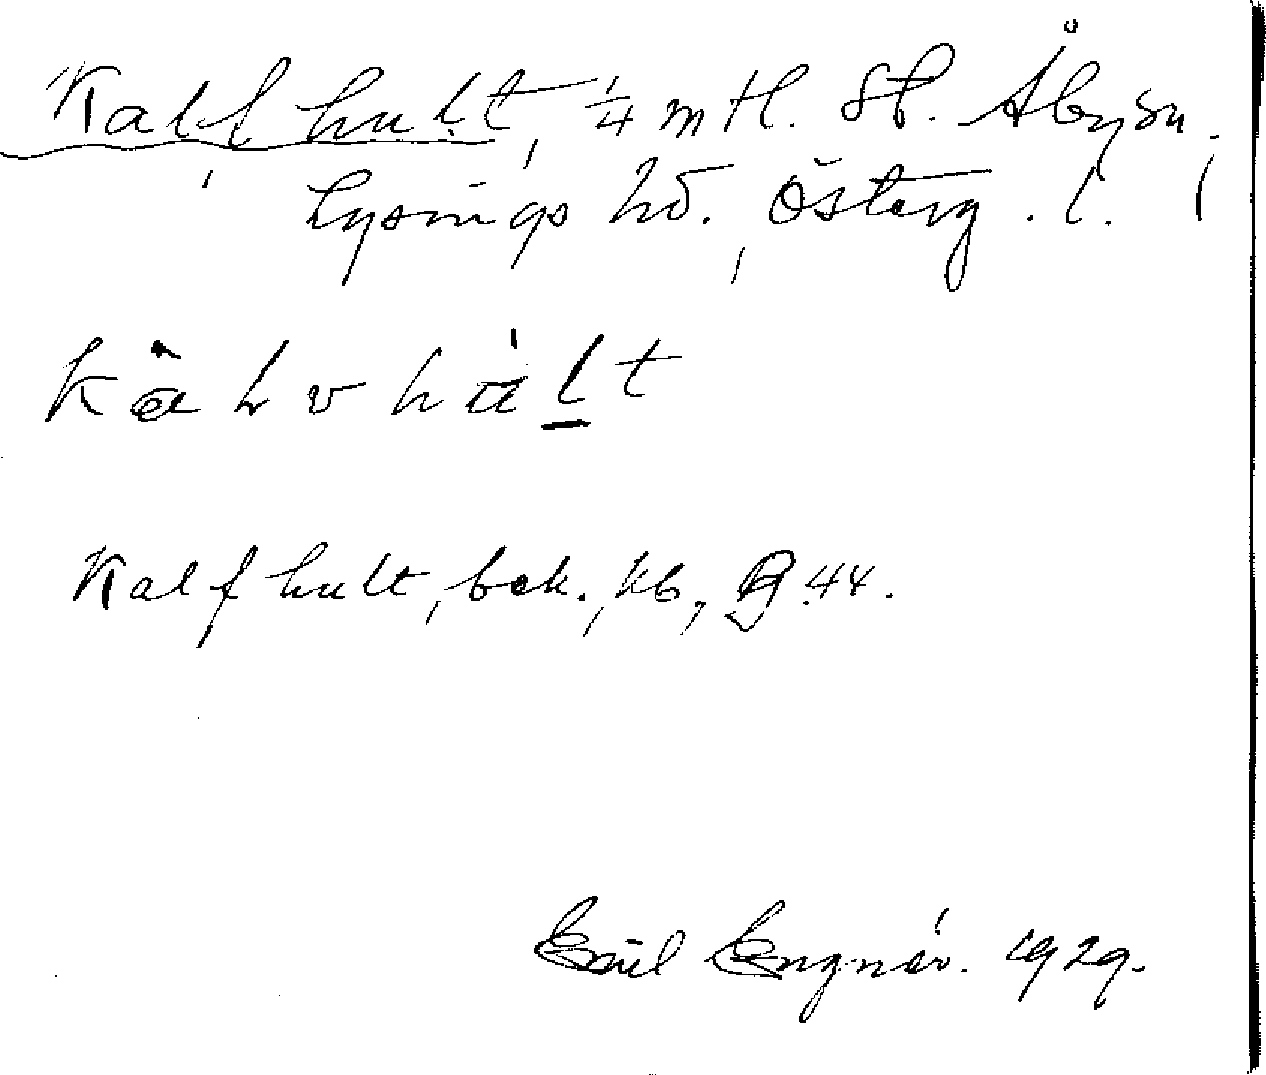 Kalfhult, 1/4 mtl. St. Åby sn,
Lysings hd., Österg. l.
Kalfhult, bek., kb, 44.
Emil Engnér. 1929.